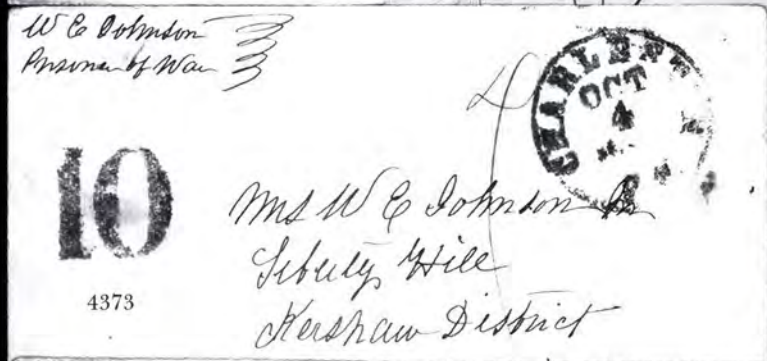 W E Johnson
Prisoner of War
CHARLEST
OCT
4
10
Mrs W E Johnson Jr
Liberty Hill
Kershaw District
4373